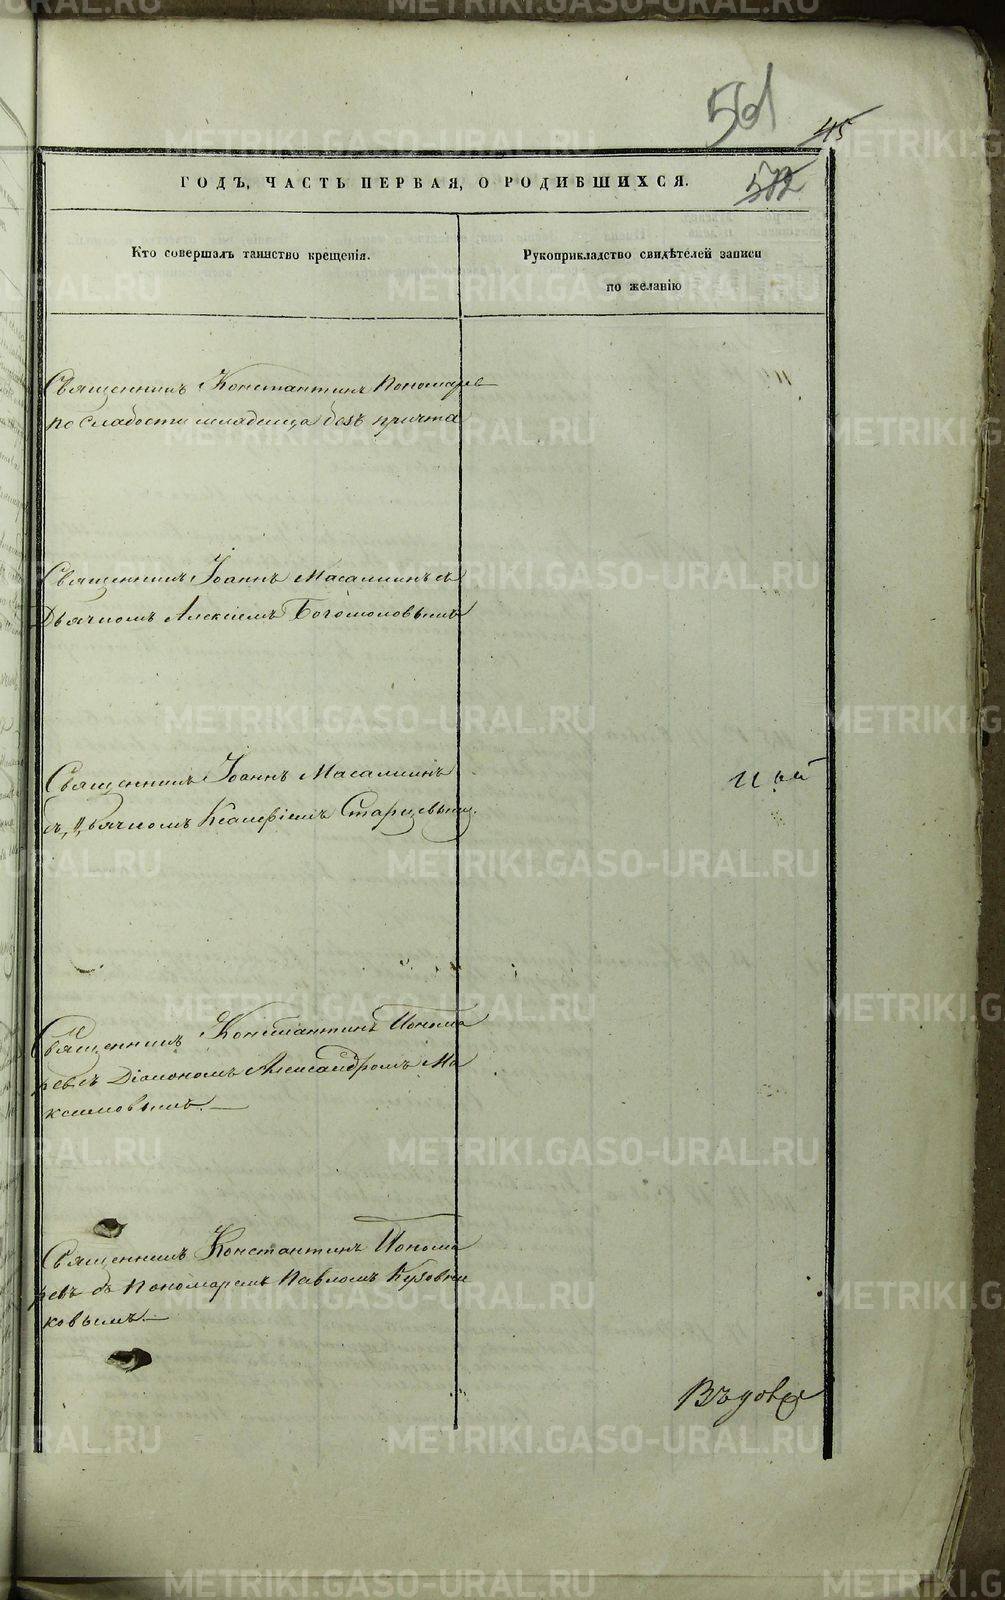 561
45
572
ГОДЪ, ЧАСТЬ ПЕРВАЯ, О РОДИВШИХСЯ.
Кто совершалъ таинство крещенія.
Рукоприкладство свидѣтелей записи
по желанію
Священникъ Константинъ Пономарев
по слабости младенца безъ причта
Священникъ Іоаннъ Масалкинъ съ
Дьячкомъ Алексіемъ Богомоловымъ
Священникъ Іоаннъ Масалкинъ
съ Дьячкомъ Старцевымъ.
Священникъ Константинъ Понома
ревъ съ Діакономъ Александромъ Ма
ксимовымъ.
Священникъ Константинъ Понома
ревъ съ Пономаремъ Павломъ Кузовни
ковымъ.
METRIKI.GASO-URAL.RU